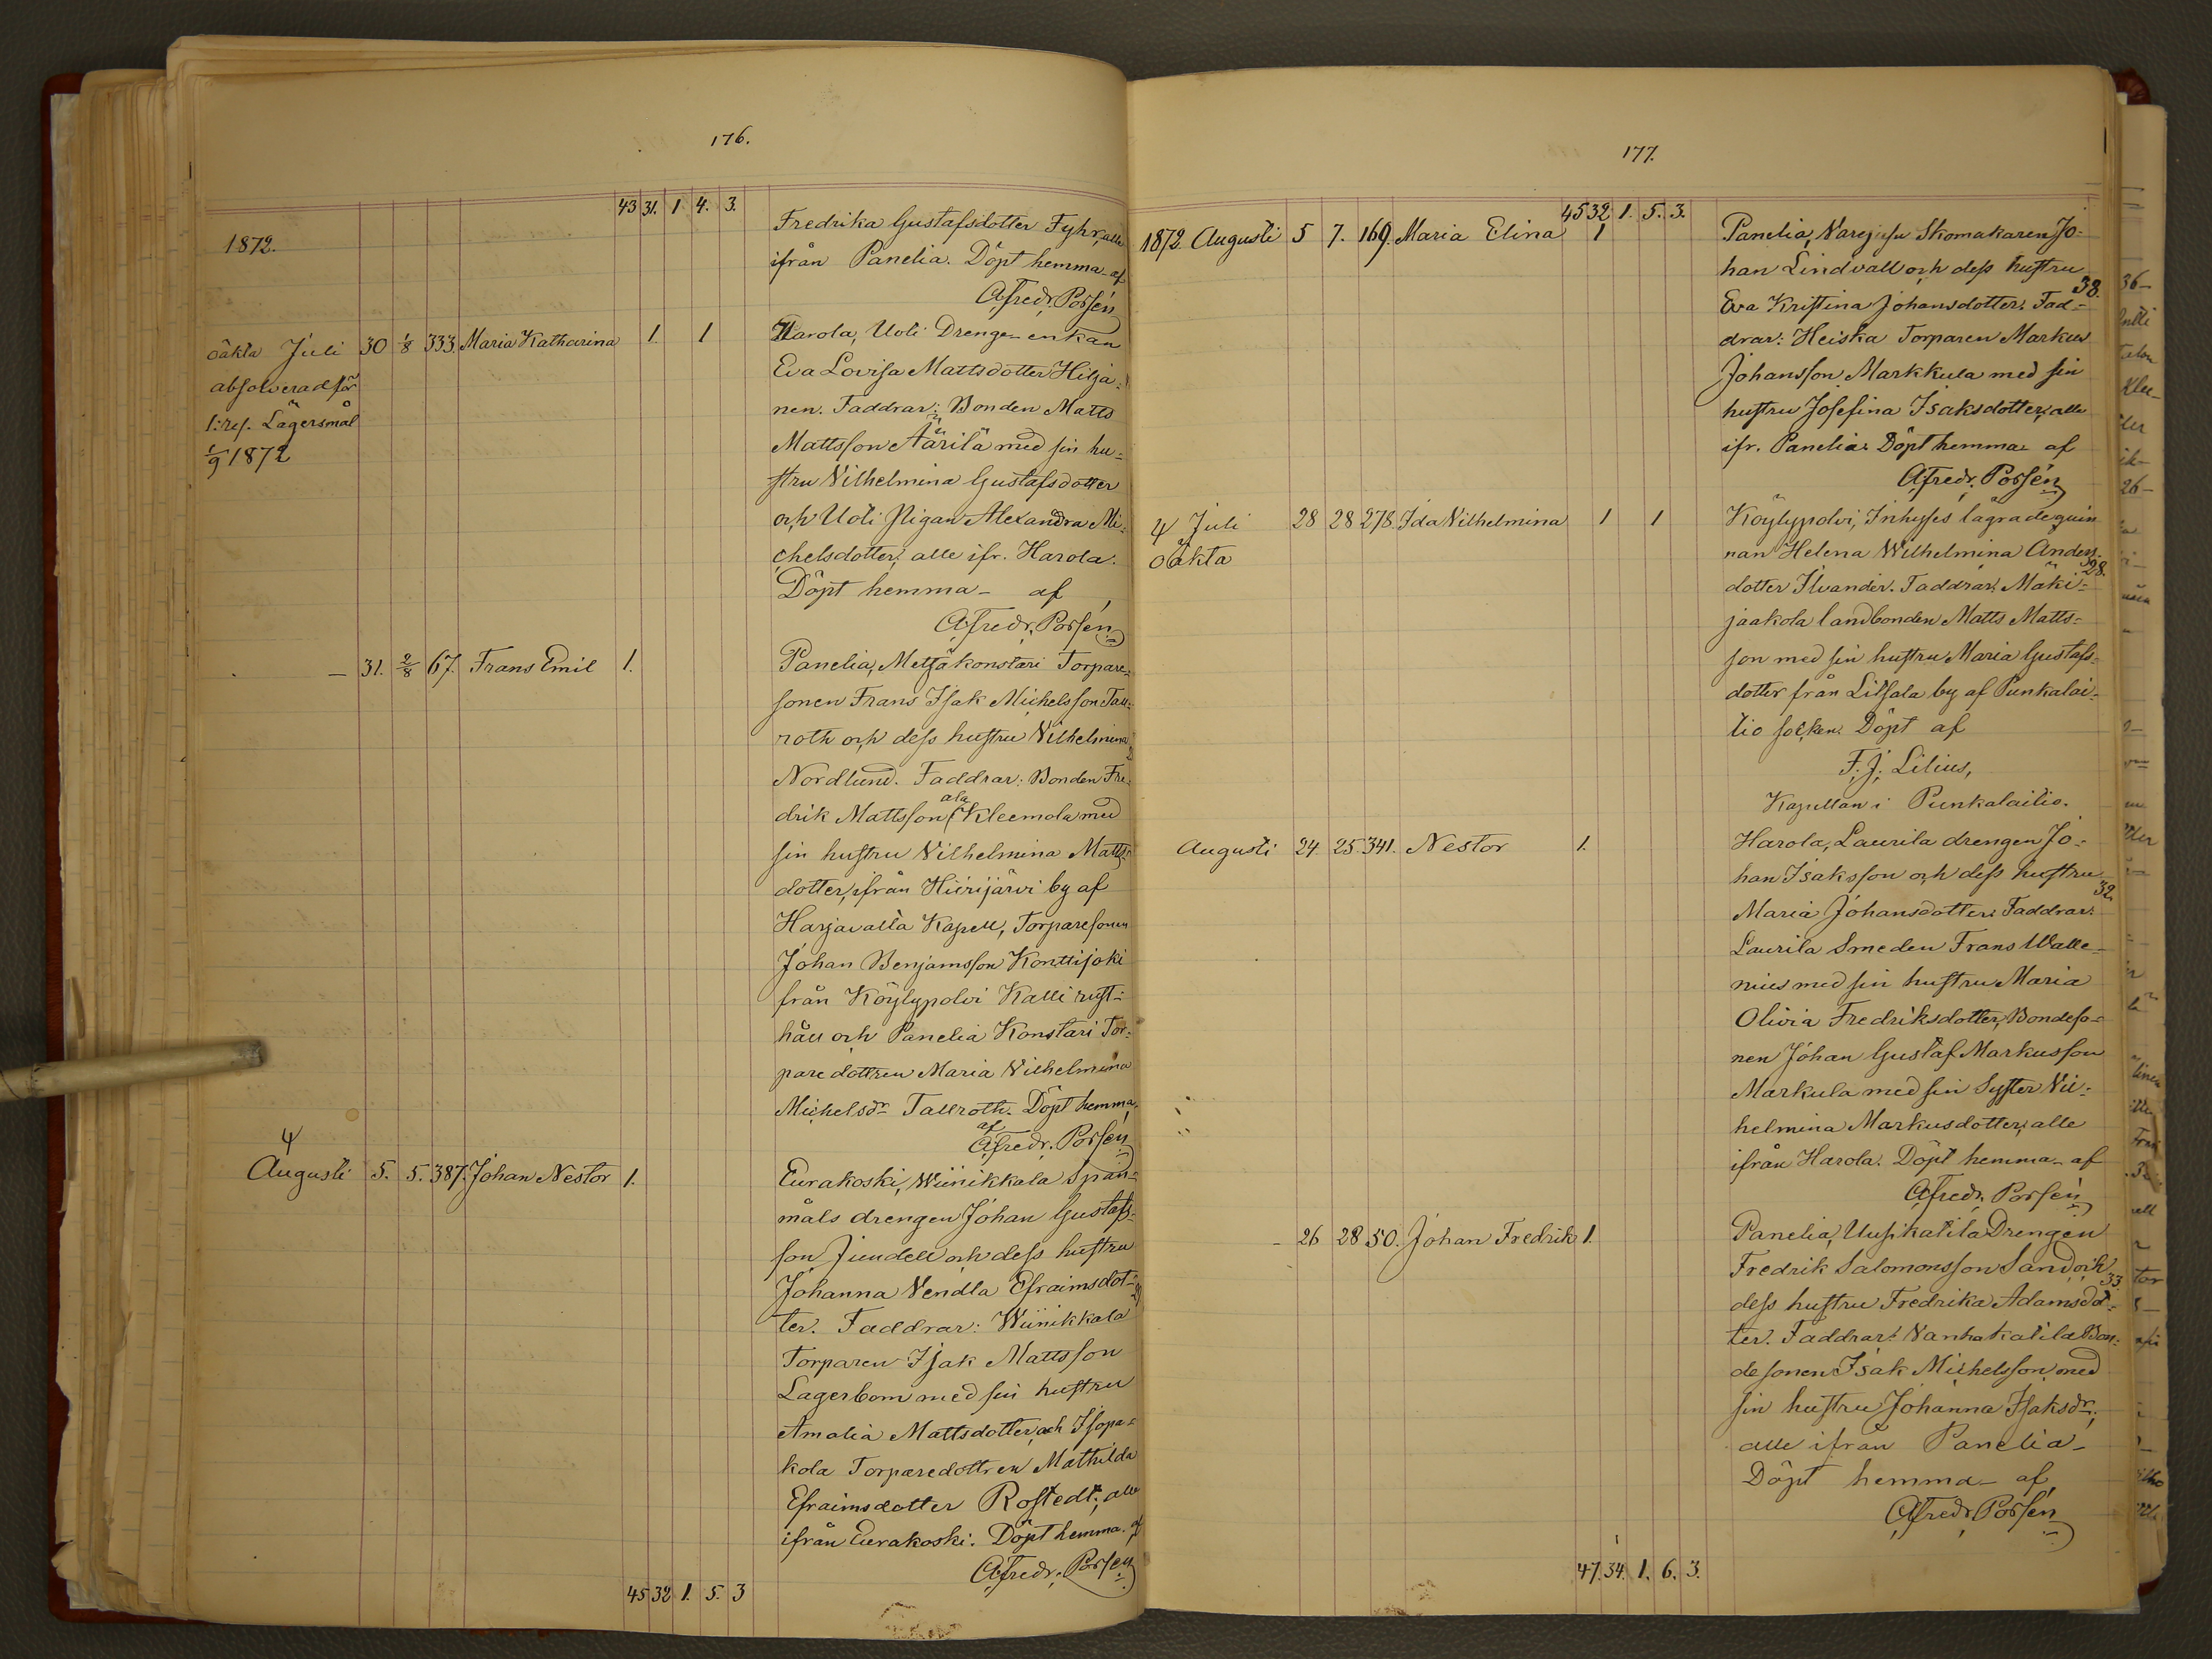 176.
43 31. 1 4. 3.
1872.
Fredrika Gustafsdotter Fyhr, alla
ifrån Panelia. Döpt hemma af
A. Fredr. Porsén
oäkta Juli 30 1/8 333. Maria Katharina 1. 1
absolverad för
1:res. Lägersmål
1/9 1872
Harola, Uoti Drenge enkan
Eva Lovisa Mattsdotter Hilja=
nen. Faddrar: Bonden Matts
Mattsson Äärilä med sin hu=
stru Vilhelmina Gustafsdotter
och Uoti Pigan Alexandra Mi=
chelsdotter, alle ifr. Harola.
Döpt hemma – af
A. Fredr. Porsén
– 31. 2/8 67. Frans Emil 1.
Panelia, Metsäkonstari Torpare=
sonen Frans Isak Michelsson Tall=
roth och dess hustru Vilhelmina
Nordlund. Faddrar: Bonden Fre=
drik Mattsson ala Kleemola med
sin hustru Vilhelmina Matts=
dotter, ifrån Hiirijärvi by af
Harjavalta Kapell, Torparesonen
Johan Benjamsson Konttijoki
från Köylypolvi Kalli rust=
håll och Panelia Konstari Tor=
paredottren Maria Vilhelmina
Michelsdr Tallroth. Döpt hemma
af
A. Fredr. Porsén
Augusti 5. 5. 387. Johan Nestor 1.
Eurakoski, Wiinikkala Span=
måls drengen Johan Gustafs=
son Jundell och dess hustru
Johanna Vendla Efraimsdot=
ter. Faddrar: Wiinikkala
Torparen Isak Mattsson
Lagerbom med sin hustru
Amalia Mattsdotter, och Isopa=
kola Torparedottren Mathilda
Efraimsdotter Rostedt; alle
ifrån Eurakoski. Döpt hemma af
A. Fredr. Porsén
45 32 1. 5. 3
177.
45 32 1. 5. 3.
1872. Augusti 5 7. 169. Maria Elina 1
Panelia, Skomakaren Jo=
han Lindvall och dess hustru
38.
Eva Kristina Johansdotter. Fad=
drar: Heiska Torparen Markus
Johansson Markkula med sin
hustru Josefina Isaksdotter; alle
ifr. Panelia. Döpt hemma af
A. Fredr. Porsén
Juli 28 28 278. Ida Vilhelmina 1 1
oäkta
Köylypolvi, Inhyses lägrade qvin
nan Helena Wilhelmina Anders=
28.
dotter Ilvander. Faddrar: Mäki=
jaakola landbonden Matts Matts=
son med sin hustru Maria Gustafs=
dotter från Litsala by af Punkalai=
tio socken. Döpt af
F. J. Lilius,
Kapellan i Punkalaitio.
Augusti 24. 25. 341. Nestor 1.
Harola, Laurila drengen Jo=
han Isaksson och dess hustru
32.
Maria Johansdotter. Faddrar:
Laurila Smeden Frans Walle=
nius med sin hustru Maria
Olivia Fredriksdotter, Bondeso=
nen Johan Gustaf Markusson
Markula med sin Syster Vil=
helmina Markusdotter, alle
ifrån Harola. Döpt hemma – af
A. Fredr. Porsén
– 26 28 50. Johan Fredrik 1.
Panelia, Uusikatila Drengen
Fredrik Salomonsson Sand och
33.
dess hustru Fredrika Adamsdot=
ter. Faddrar: Vanhakatila Bon=
desonen Isak Michelsson med
sin hustru Johanna Isaksdr,
alle ifrån Panelia –
Döpt hemma – af
A. Fredr. Porsén
47. 34. 1. 6. 3.